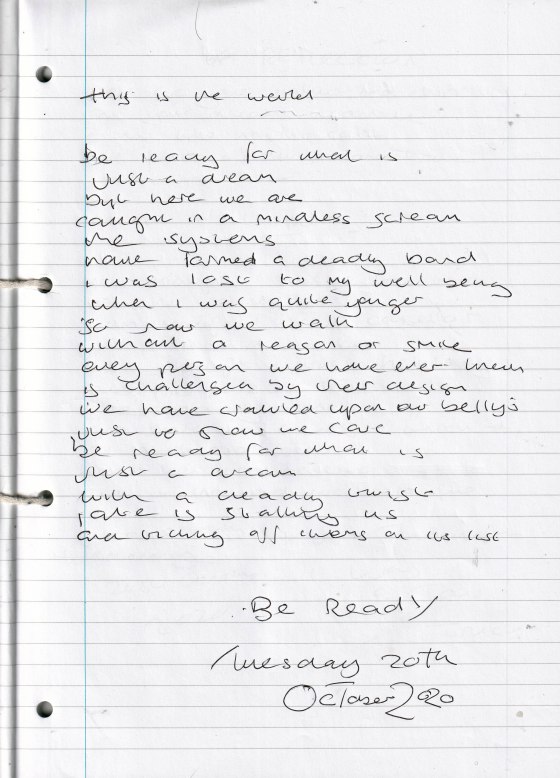 this is the world
be ready for what is
Just a dream
but here we are
caught in a mindless scream
the systems
have formed a deadly band
i was lost to my well being
when i was quite yonger
So now we walk
without a reason or smile
every person we have ever
is challenged by their design
we have crawled upon our belly's
Just to show we care
be ready for what is
Just a dream
with a deadly twist
fate is stalking us
and ticking off items on its list
Be Ready
Tuesday 20th
October 2020